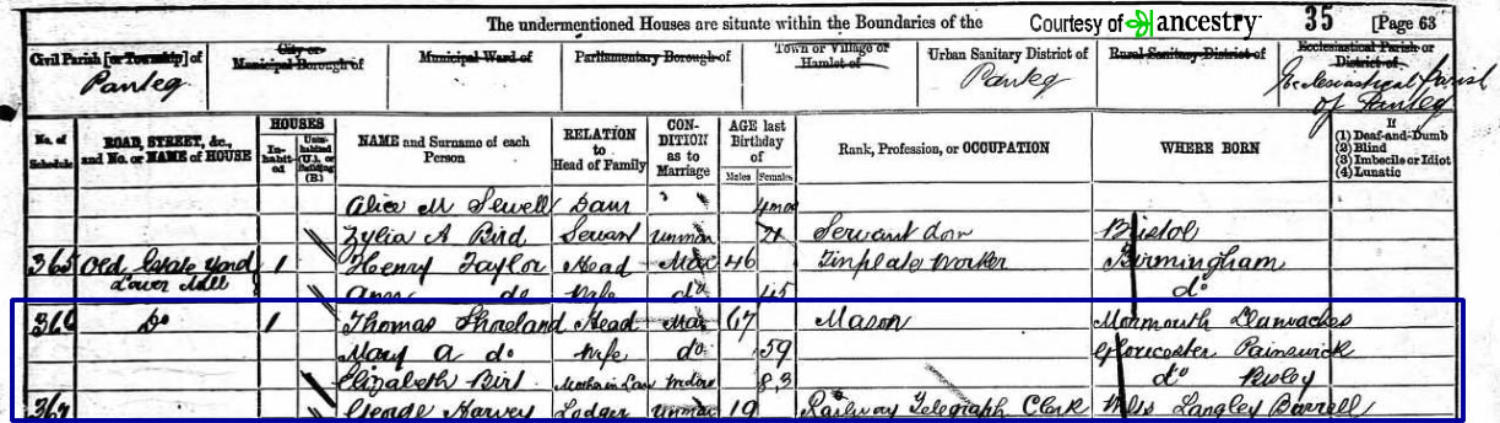 The undermentioned Houses are situate within the Boundaries of the Courtesy of ancestry 35 [Page 63
Civil Parish [or Township] of City or Municipal Borough of Municipal Ward of Parliamentary Borough of Town or Village or Hamlet of Urban Sanitary District of Rural Sanitary District of Ecclesiastical Parish or District of
Panteg Panteg Ecclesiastical Parish of Panteg
No. of Schedule ROAD, STREET, &c., and No. or NAME of HOUSE HOUSES Inhabited Uninhabited (U.), or Building (B.) NAME and Surname of each Person RELATION to Head of Family CONDITION as to Marriage AGE last Birthday of Males Females Rank, Profession, or OCCUPATION WHERE BORN If (1) Deaf-and-Dumb (2) Blind (3) Imbecile or Idiot (4) Lunatic
Alice M Sewell Daur 4mos
Zylia A Bird Servant Unmar 21 Servant dom Bristol
365 Old Estate Yard 1 Henry Taylor Head Mar 46 Tinplate Worker Birmingham
Lower Mill Ann do Wife do 45 do
366 Do 1 Thomas Shoreland Head Mar 67 Mason Monmouth Llanvaches
Mary A do Wife do 59 Gloucester Painswick
Elizabeth Birt Mother in Law Widow 83 do Bisley
367 George Harvey Lodger Unmar 19 Railway Telegraph Clerk Wilts Langley Burrell